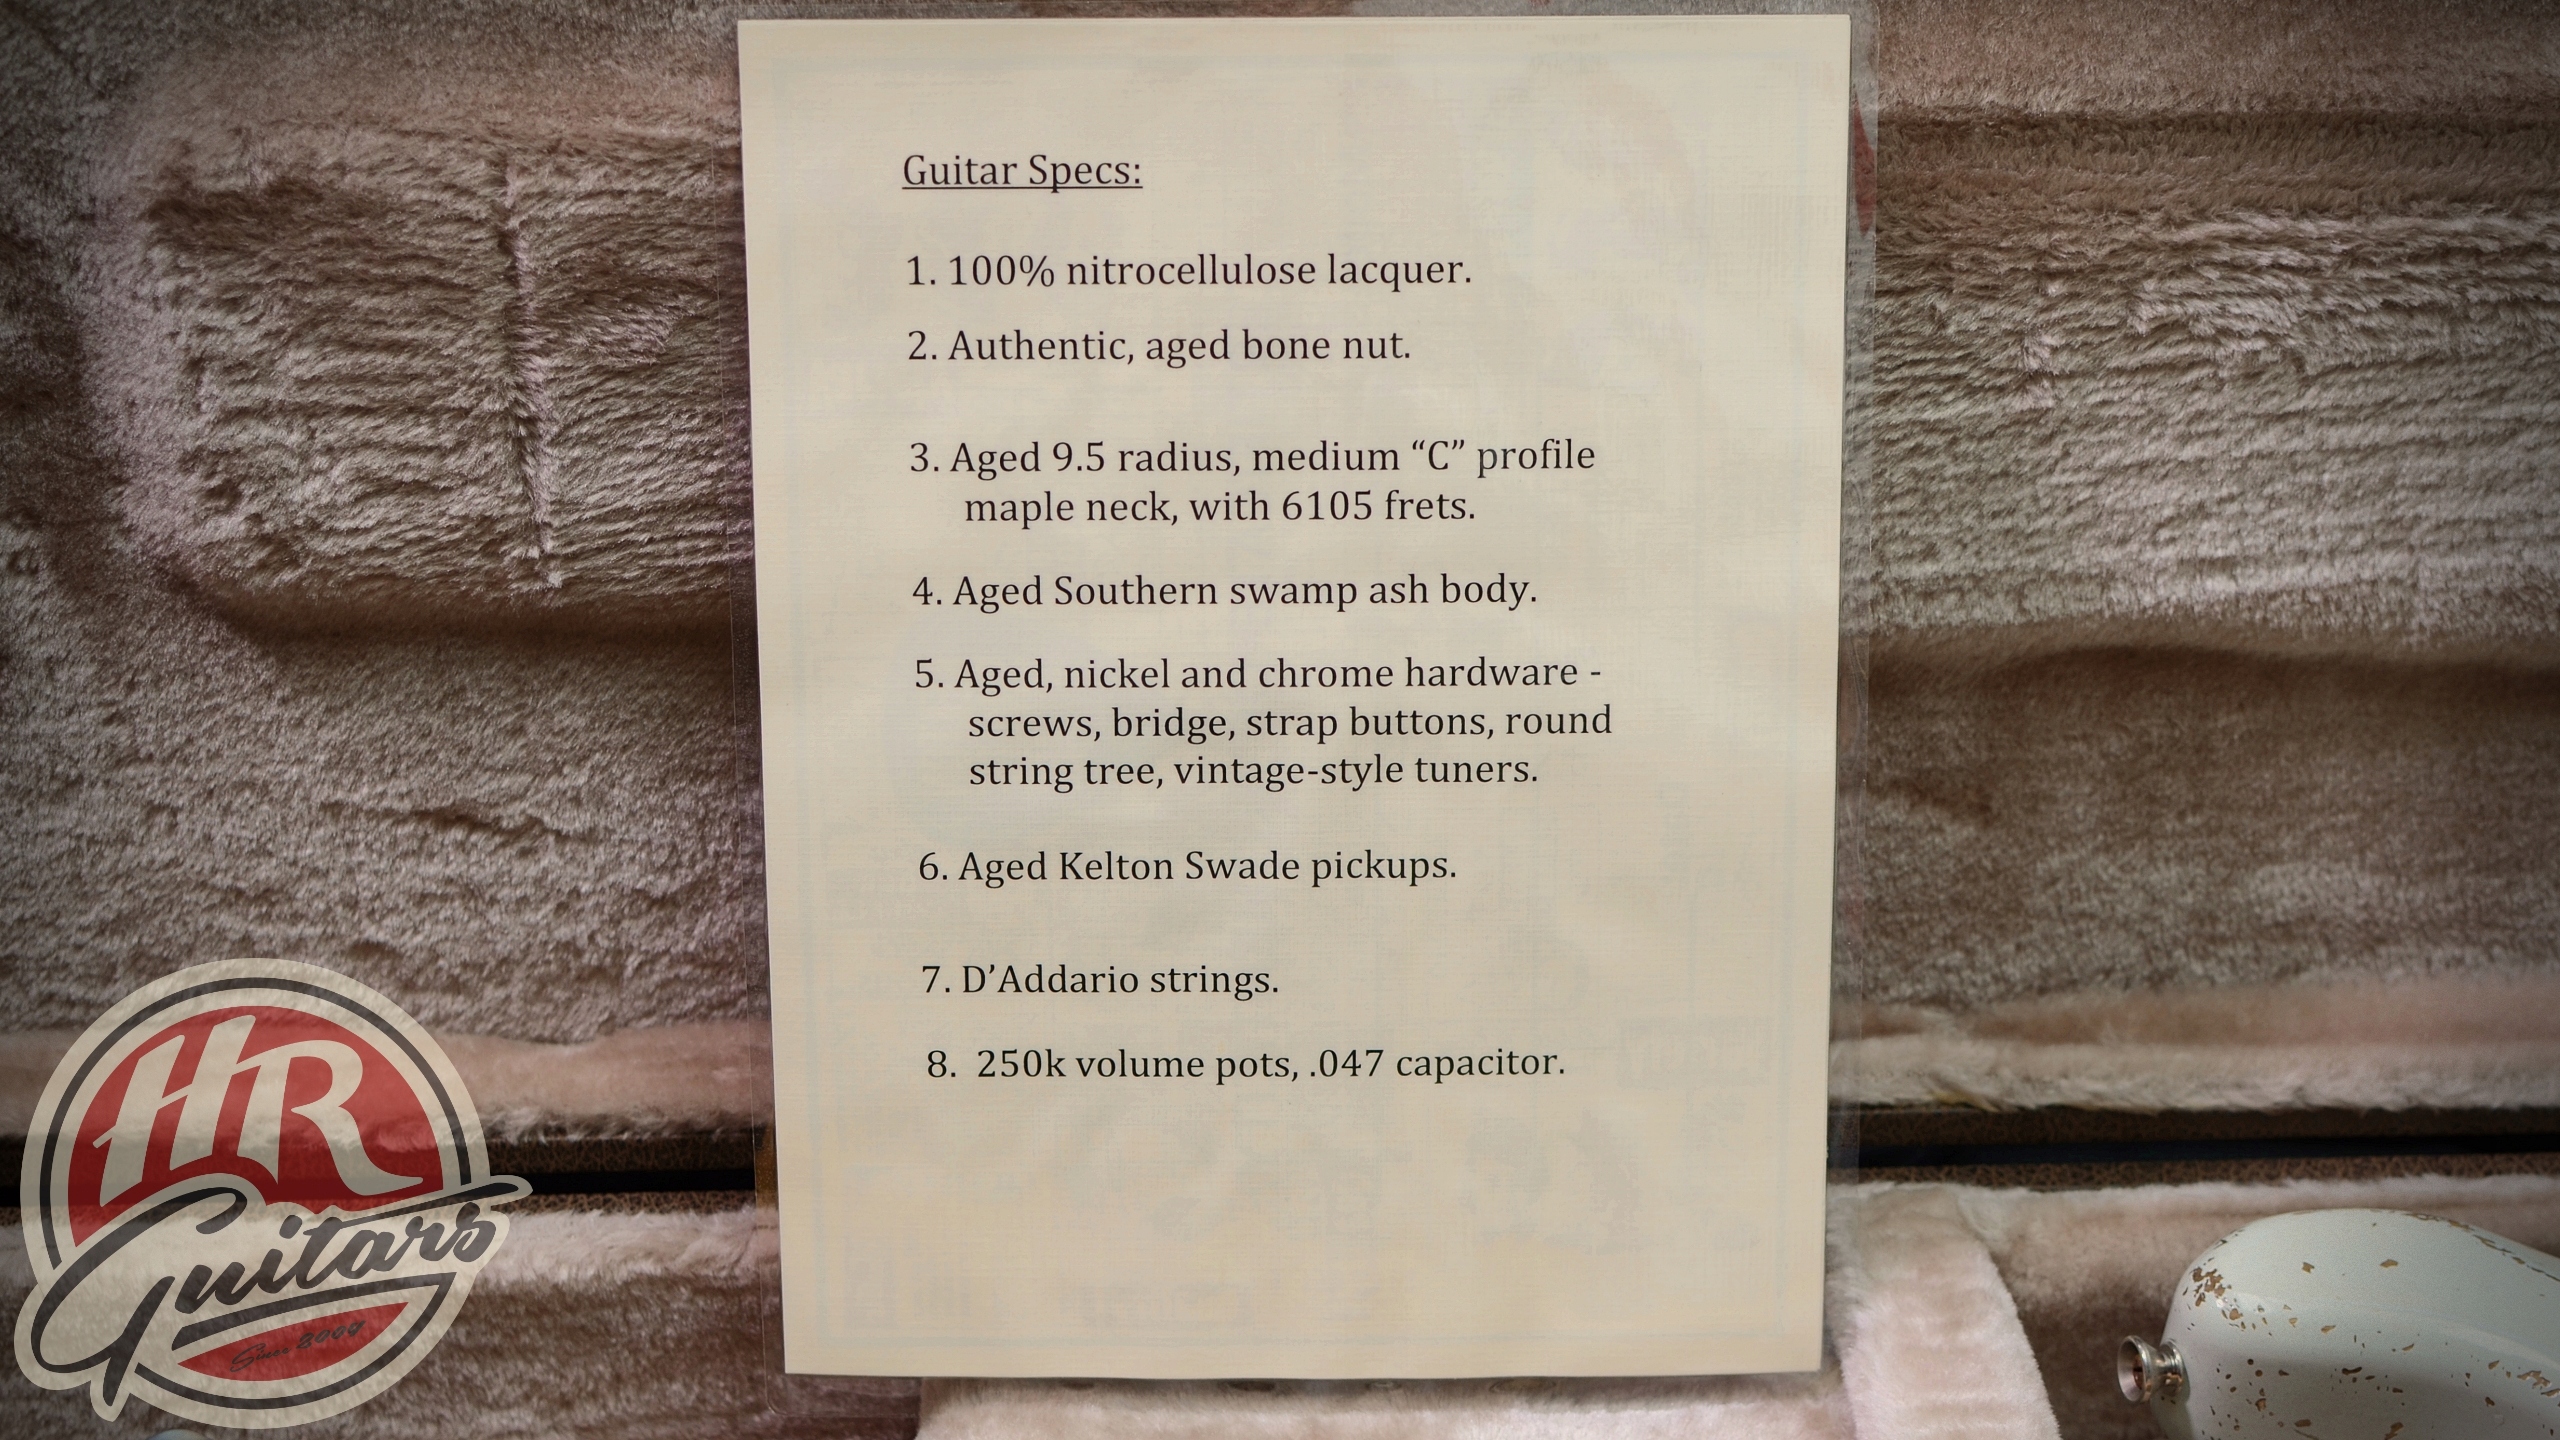 Guitar Specs:
1. 100% nitrocellulose lacquer.
2. Authentic, aged bone nut.
3. Aged 9.5 radius, medium “C” profile
maple neck, with 6105 frets.
4. Aged Southern swamp ash body.
5. Aged, nickel and chrome hardware -
screws, bridge, strap buttons, round
string tree, vintage-style tuners.
6. Aged Kelton Swade pickups.
7. D’Addario strings.
8. 250k volume pots, .047 capacitor.
HR
Guitars
Since 2009